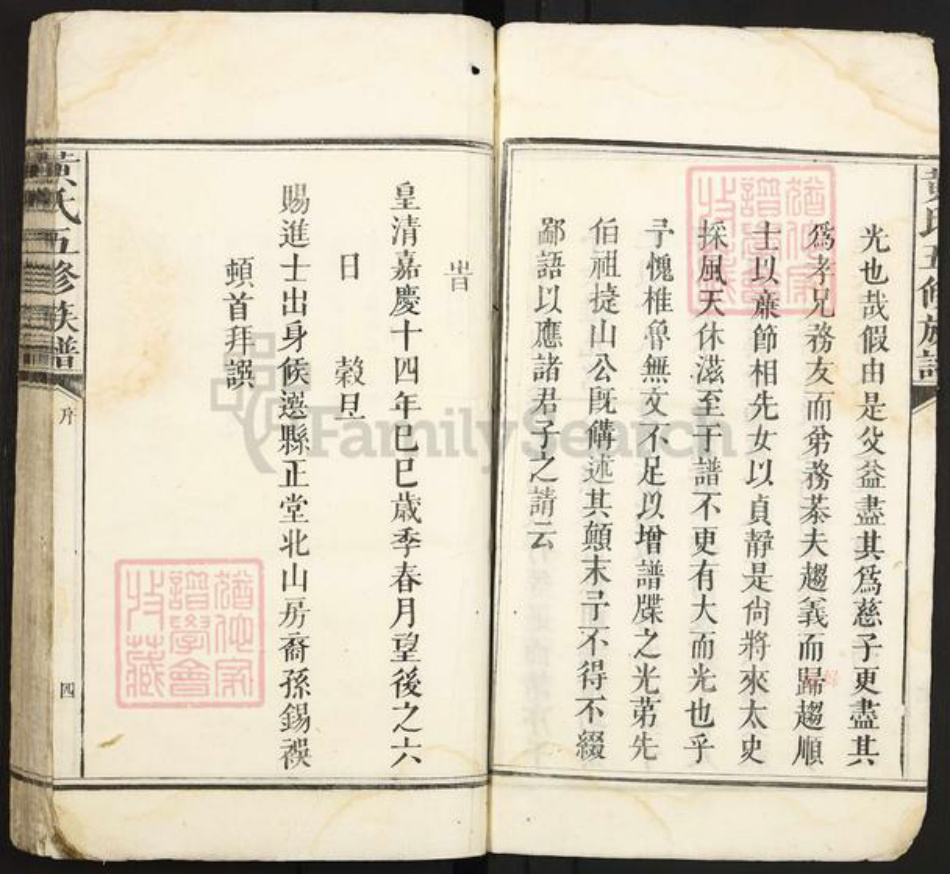 黃氏五修族譜
光也哉假由是父益盡其爲慈子更盡其
爲孝兄務友而弟務恭夫趨義而歸趨順
士以亷節相先女以貞靜是尚將來太史
採風天休滋至于譜不更有大而光也乎
予愧椎魯無文不足以增譜牒之光苐先
伯祖㨗山公旣備述其顛末予不得不綴
鄙語以應諸君子之請云
旹
皇清嘉慶十四年己巳歲季春月望後之六
日 穀旦
賜進士出身候選縣正堂北山房裔孫錫禩
頓首拜譔
黃氏五修族譜
序
四
譜學會
收藏
FamilySearch